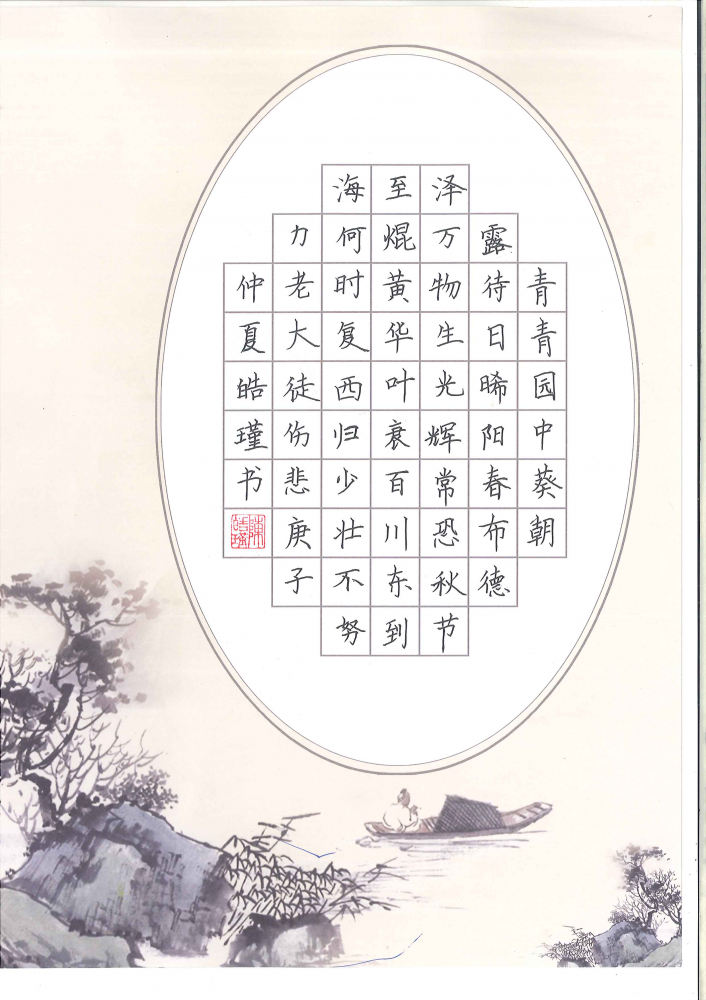 青青园中葵朝
露待日晞阳春布德
泽万物生光辉常恐秋节
至焜黄华叶衰百川东到
海何时复西归少壮不努
力老大徒伤悲庚子
仲夏皓瑾书
陳皓瑾